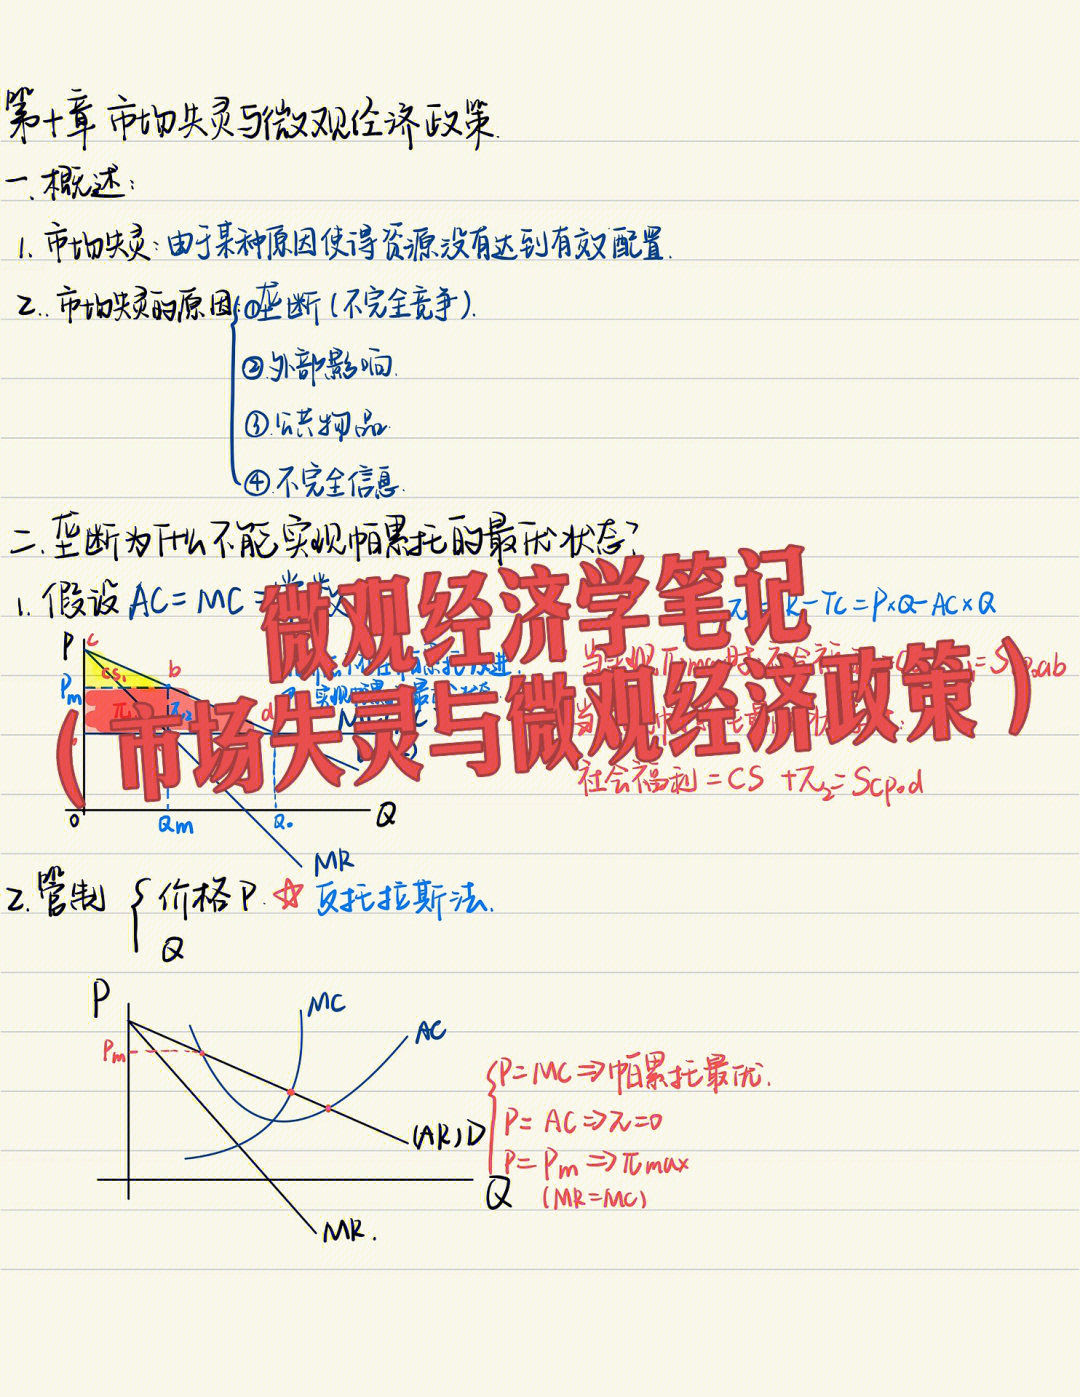 第十章 市场失灵与微观经济政策.
一、概述:
1. 市场失灵:由于某种原因使得资源没有达到有效配置.
2. 市场失灵的原因 ①垄断(不完全竞争).
②外部影响.
③公共物品
④不完全信息.
二、垄断为什么不能实现帕累托的最优状态?
微观经济学笔记
(市场失灵与微观经济政策)
1. 假设 AC = MC =
R - TC = P×Q - AC×Q
P
c
cs₁
b
Pm
d
社会福利 = CS + π₂ = Scp₀d
0
Qm
Q₀
Q
MR
2. 管制 { 价格P. ☆ 反托拉斯法.
Q
P
MC
AC
Pm
P = MC => 帕累托最优.
P = AC => π=0
(AR)D
P = Pm => πmax
(MR=MC)
Q
MR.